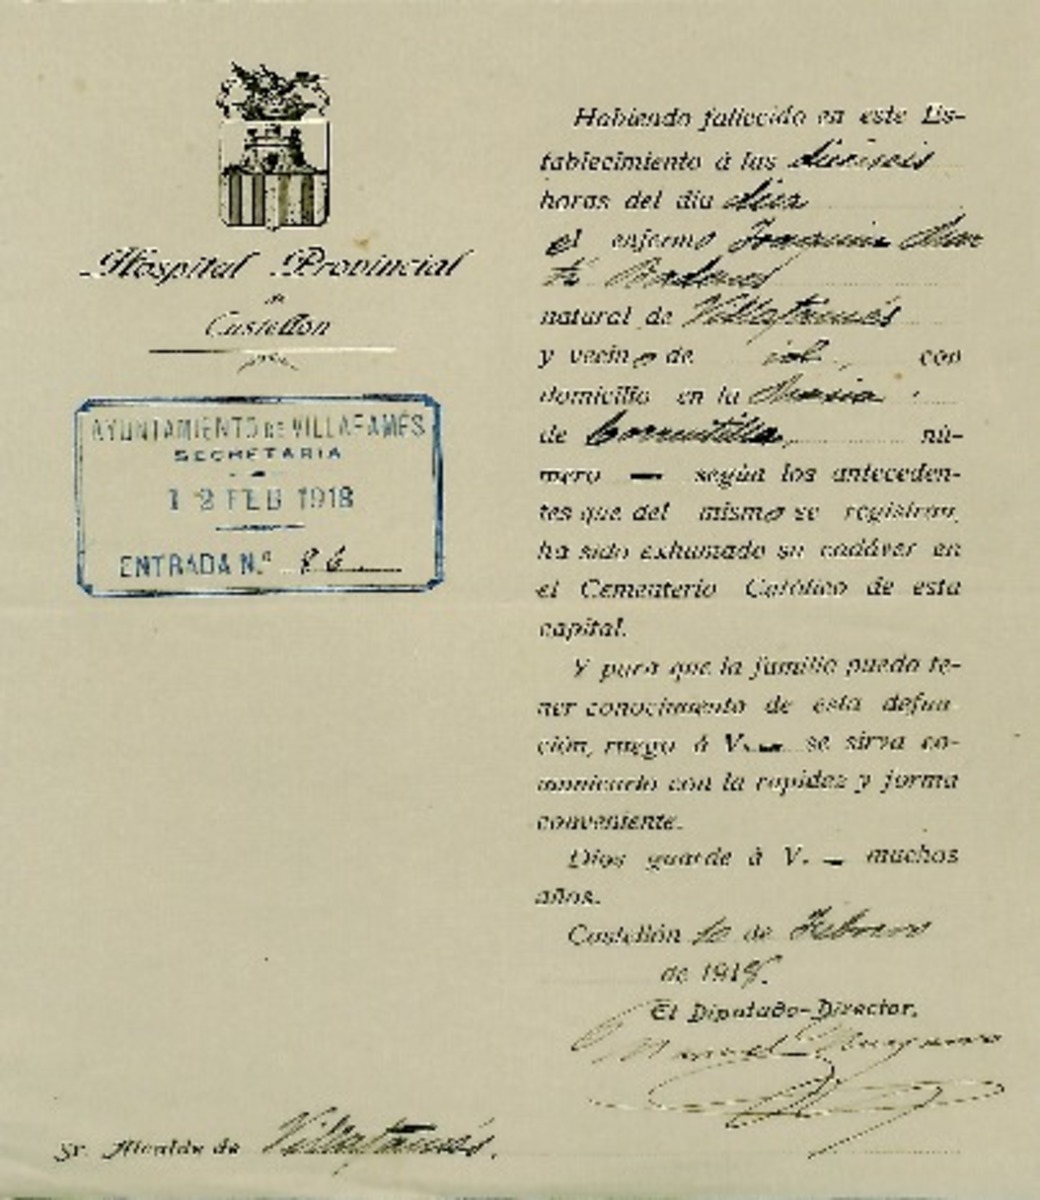 Hospital Provincial
de
Castellón
AYUNTAMIENTO DE VILLAFAMÉS
SECRETARIA
12 FEB 1918
ENTRADA N.º 86
Habiendo fallecido en este Es-
tablecimiento á las dieciseis
horas del dia diez
el enfermo Joaquin
natural de Villafamés
y vecino de id. con
domicilio en la Masia
de nú-
mero — según los anteceden-
tes que del mismo se registran,
ha sido exhumado su cadáver en
el Cementerio Católico de esta
capital.
Y para que la familia pueda te-
ner conocimiento de esta defun-
ción, ruego á V. — se sirva co-
municarlo con la rapidez y forma
conveniente.
Dios guarde á V. — muchos
años.
Castellón 10 de Febrero
de 1918.
El Diputado-Director,
Manuel
Sr. Alcalde de Villafamés.